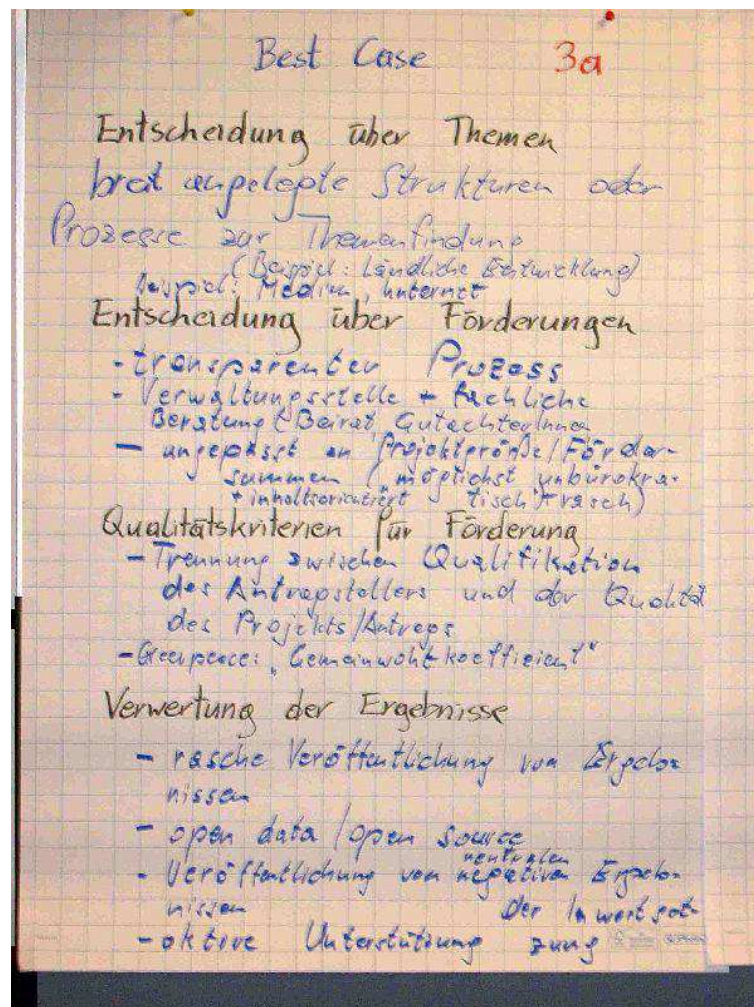 Best Case 3a
Entscheidung über Themen
breit angelegte Strukturen oder
Prozesse zur Themenfindung
(Beispiel: Ländliche Entwicklung)
Beispiel: Medien, Internet
Entscheidung über Förderungen
- transparenter Prozess
- Verwaltungsstelle + fachliche
Beratung (Beirat, GutachterInnen
- angepasst an Projektgröße/Förder-
summen (möglichst unbürokra-
+ inhaltsorientiert tisch + rasch)
Qualitätskriterien für Förderung
- Trennung zwischen Qualifikation
des Antragstellers und der Qualität
des Projekts/Antrags
- Greenpeace: "Gemeinwohlkoeffizient"
Verwertung der Ergebnisse
- rasche Veröffentlichung von Ergeb-
nissen
- open data / open source
neutralen
- Veröffentlichung von negativen Ergeb-
nissen der In wert set-
- aktive Unterstützung zung